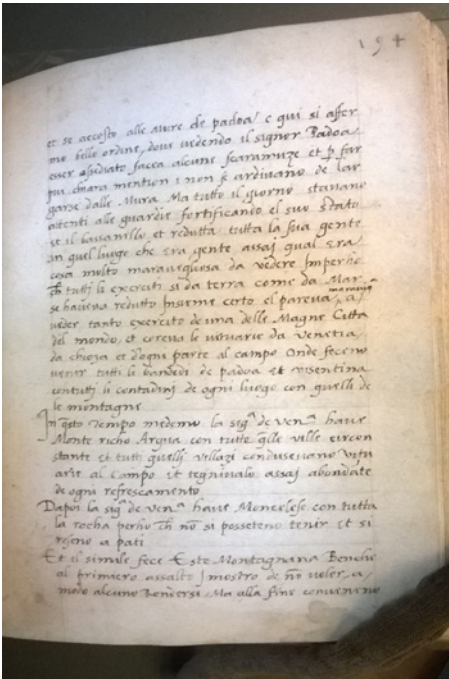 194
et se accosto alle mure de padoa e qui si affer
mo bello ordine, dove vedendo il signor Padoa
esser espediato facea alcune scaramuze et p far
piu chiara mention i non se ardivano de lar
garse dalle Mura Ma tutto il giorno stevano
attenti alle guardie fortificando el suo stato
et il bassanello et redutta tutta la sua gente
in quel luogo che era gente assaj qual era
cosa molto maravegliosa da vedere Imperho
ch tutti li exerciti si da terra come da Mar
se haciena redutto Insieme certo el pareva maraviga a
veder tanto exercito de una delle Magne Citta
del mondo, et coreva le vetuarie da Venetia,
da chioza et dogni parte al campo Onde feceno
venir tutti li bandedi de padoa et visentina
con tutti li contadinj de ogni luogo con quelli de
le montagne
In qsto Tempo medemo la sigª de venª have
Monte richo Arqua con tutte qlle ville circon
stante et tutti quellj villazi conducevano vitu
arie al Campo et tegnivalo assaj abondate
de ogni refrescamento
Dapoi la sigª de venª have Moncelese con tutta
la rocha perho ch no si posseteno tenir et si
reseno a pati
Et il simile fece Este Montagnana Benche
al primiero assalto mostro de no voler, a
modo alcuno Rendersi, Ma alla fine conveneno